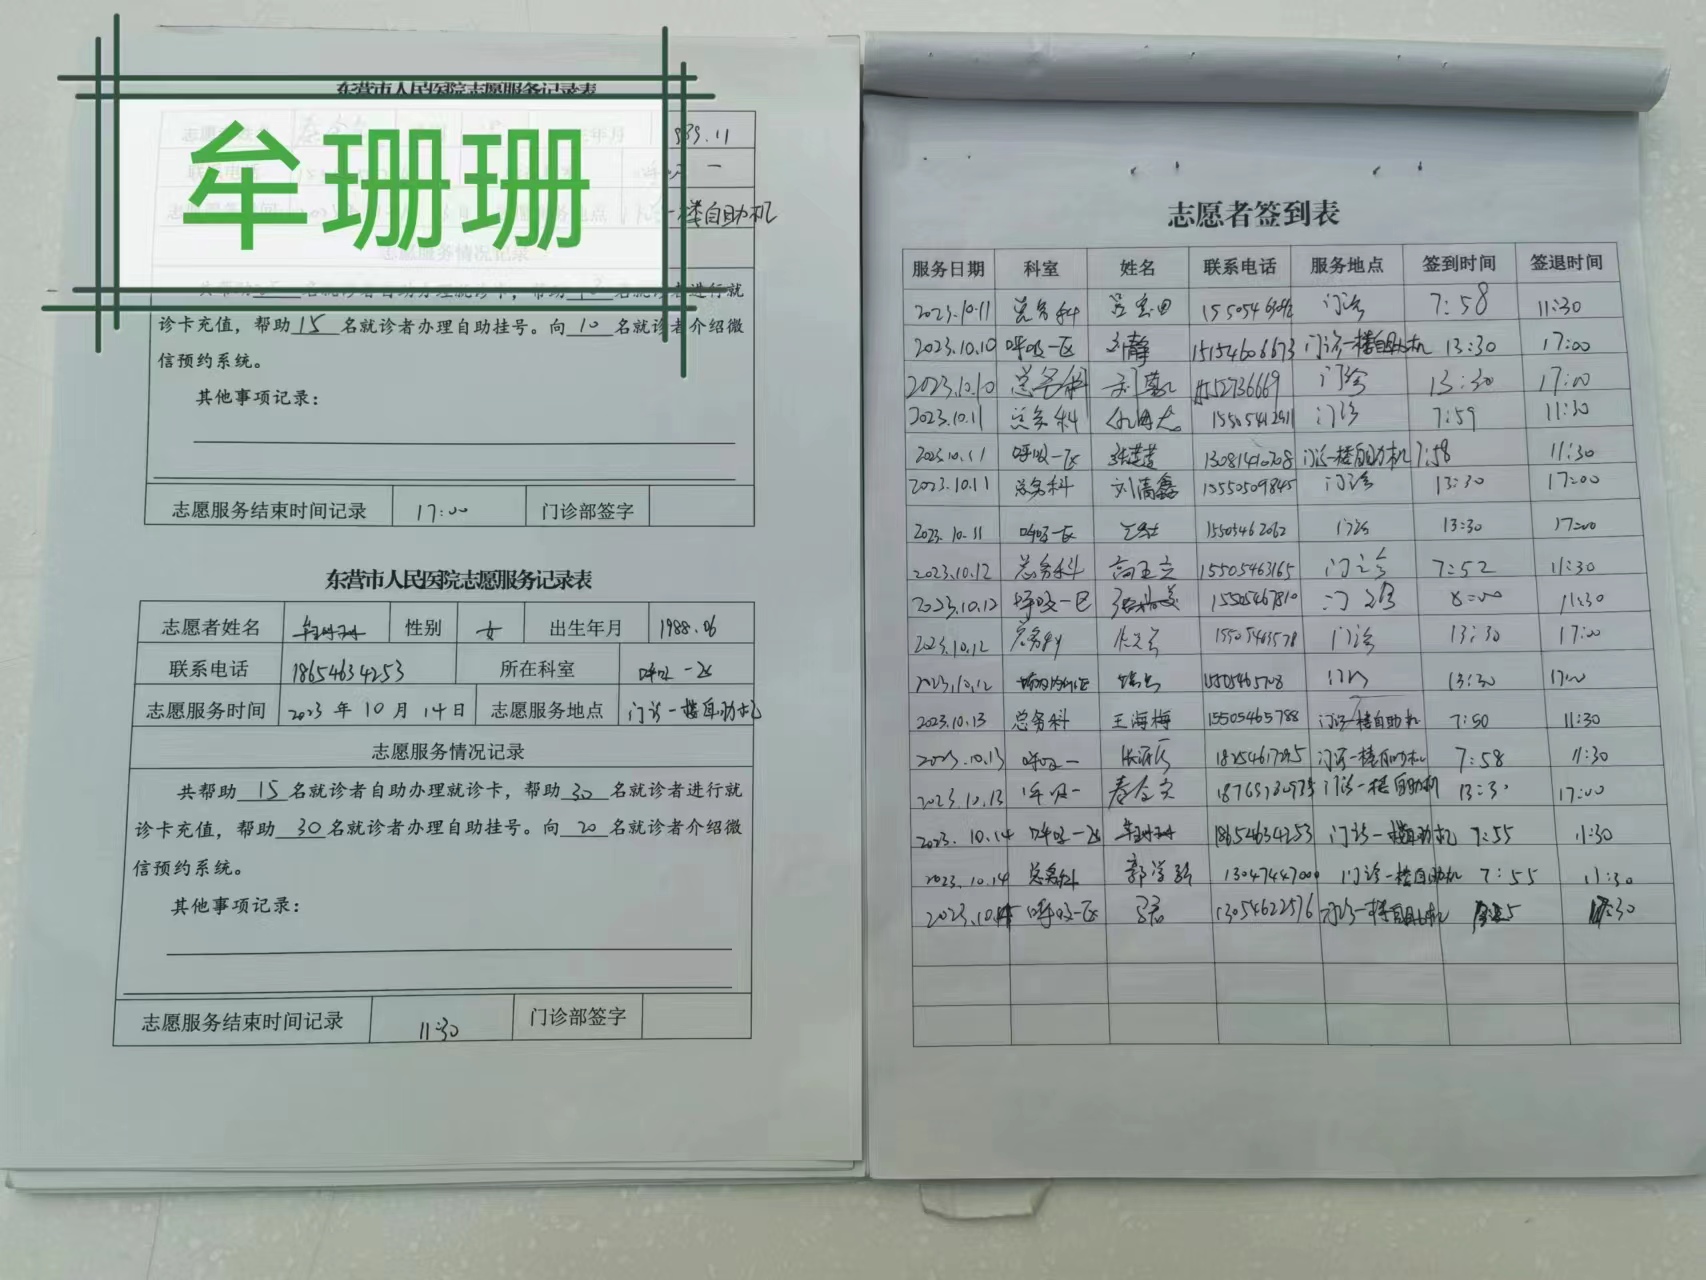 东营市人民医院志愿服务记录表
牟珊珊
一楼自助机
志愿服务情况记录
名就诊者自助办理就诊卡，帮助 名就诊者进行就
诊卡充值，帮助 15 名就诊者办理自助挂号。向 10 名就诊者介绍微
信预约系统。
其他事项记录：
志愿服务结束时间记录 17:00 门诊部签字
东营市人民医院志愿服务记录表
志愿者姓名 牟珊珊 性别 女 出生年月 1988.06
联系电话 18654634253 所在科室 呼吸一区
志愿服务时间 2023 年 10 月 14 日 志愿服务地点 门诊一楼自助机
志愿服务情况记录
共帮助 15 名就诊者自助办理就诊卡，帮助 30 名就诊者进行就
诊卡充值，帮助 30 名就诊者办理自助挂号。向 20 名就诊者介绍微
信预约系统。
其他事项记录：
志愿服务结束时间记录 11:30 门诊部签字
志愿者签到表
服务日期 科室 姓名 联系电话 服务地点 签到时间 签退时间
2023.10.11 总务科 门诊 7:58 11:30
2023.10.10 呼吸一区 刘静 15154606673 门诊一楼自助机 13:30 17:00
2023.10.10 总务科 门诊 13:30 17:00
2023.10.11 总务科 15505412911 门诊 7:59 11:30
2023.10.11 呼吸一区 13081410208 门诊一楼自助机 7:58 11:30
2023.10.11 总务科 15550509845 门诊 13:30 17:00
2023.10.11 呼吸一区 15505462062 门诊 13:30 17:00
2023.10.12 总务科 高玉立 15505463165 门诊 7:52 11:30
2023.10.12 呼吸一区 15505467810 门诊 8:00 11:30
2023.10.12 总务科 门诊 13:30 17:00
2023.10.12 门诊 13:30 17:00
2023.10.13 总务科 王海梅 15505465788 门诊一楼自助机 7:50 11:30
2023.10.13 呼吸一 门诊一楼自助机 7:58 11:30
2023.10.13 呼吸一 门诊一楼自助机 13:30 17:00
2023.10.14 呼吸一区 牟珊珊 18654634253 门诊一楼自助机 7:55 11:30
2023.10.14 总务科 13047447000 门诊一楼自助机 7:55 11:30
呼吸一区 13054622576 门诊一楼自助机